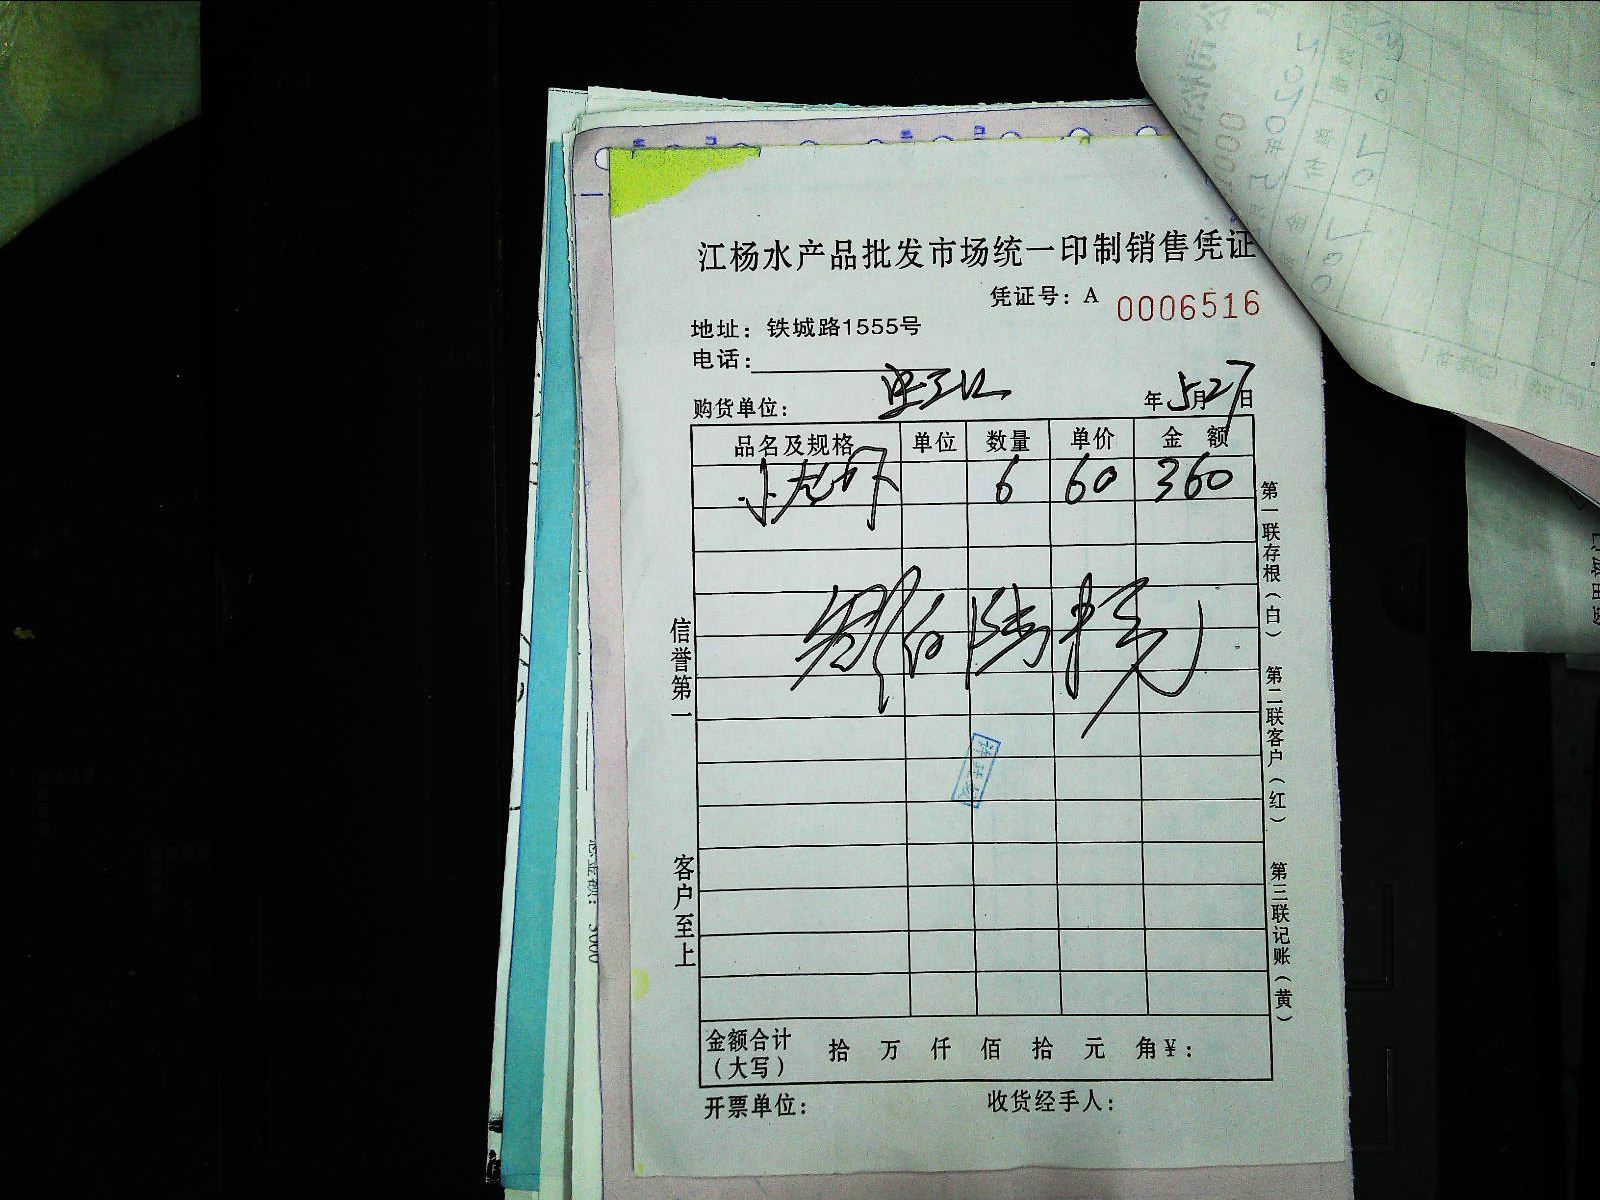 江杨水产品批发市场统一印制销售凭证
凭证号：A 0006516
地址：铁城路1555号
电话：
购货单位： 年5月27日
品名及规格 单位 数量 单价 金额
小龙虾 6 60 360
叁佰陆拾元
信誉第一
客户至上
第一联存根（白） 第二联客户（红） 第三联记账（黄）
金额合计（大写） 拾 万 仟 佰 拾 元 角 ¥：
开票单位： 收货经手人：